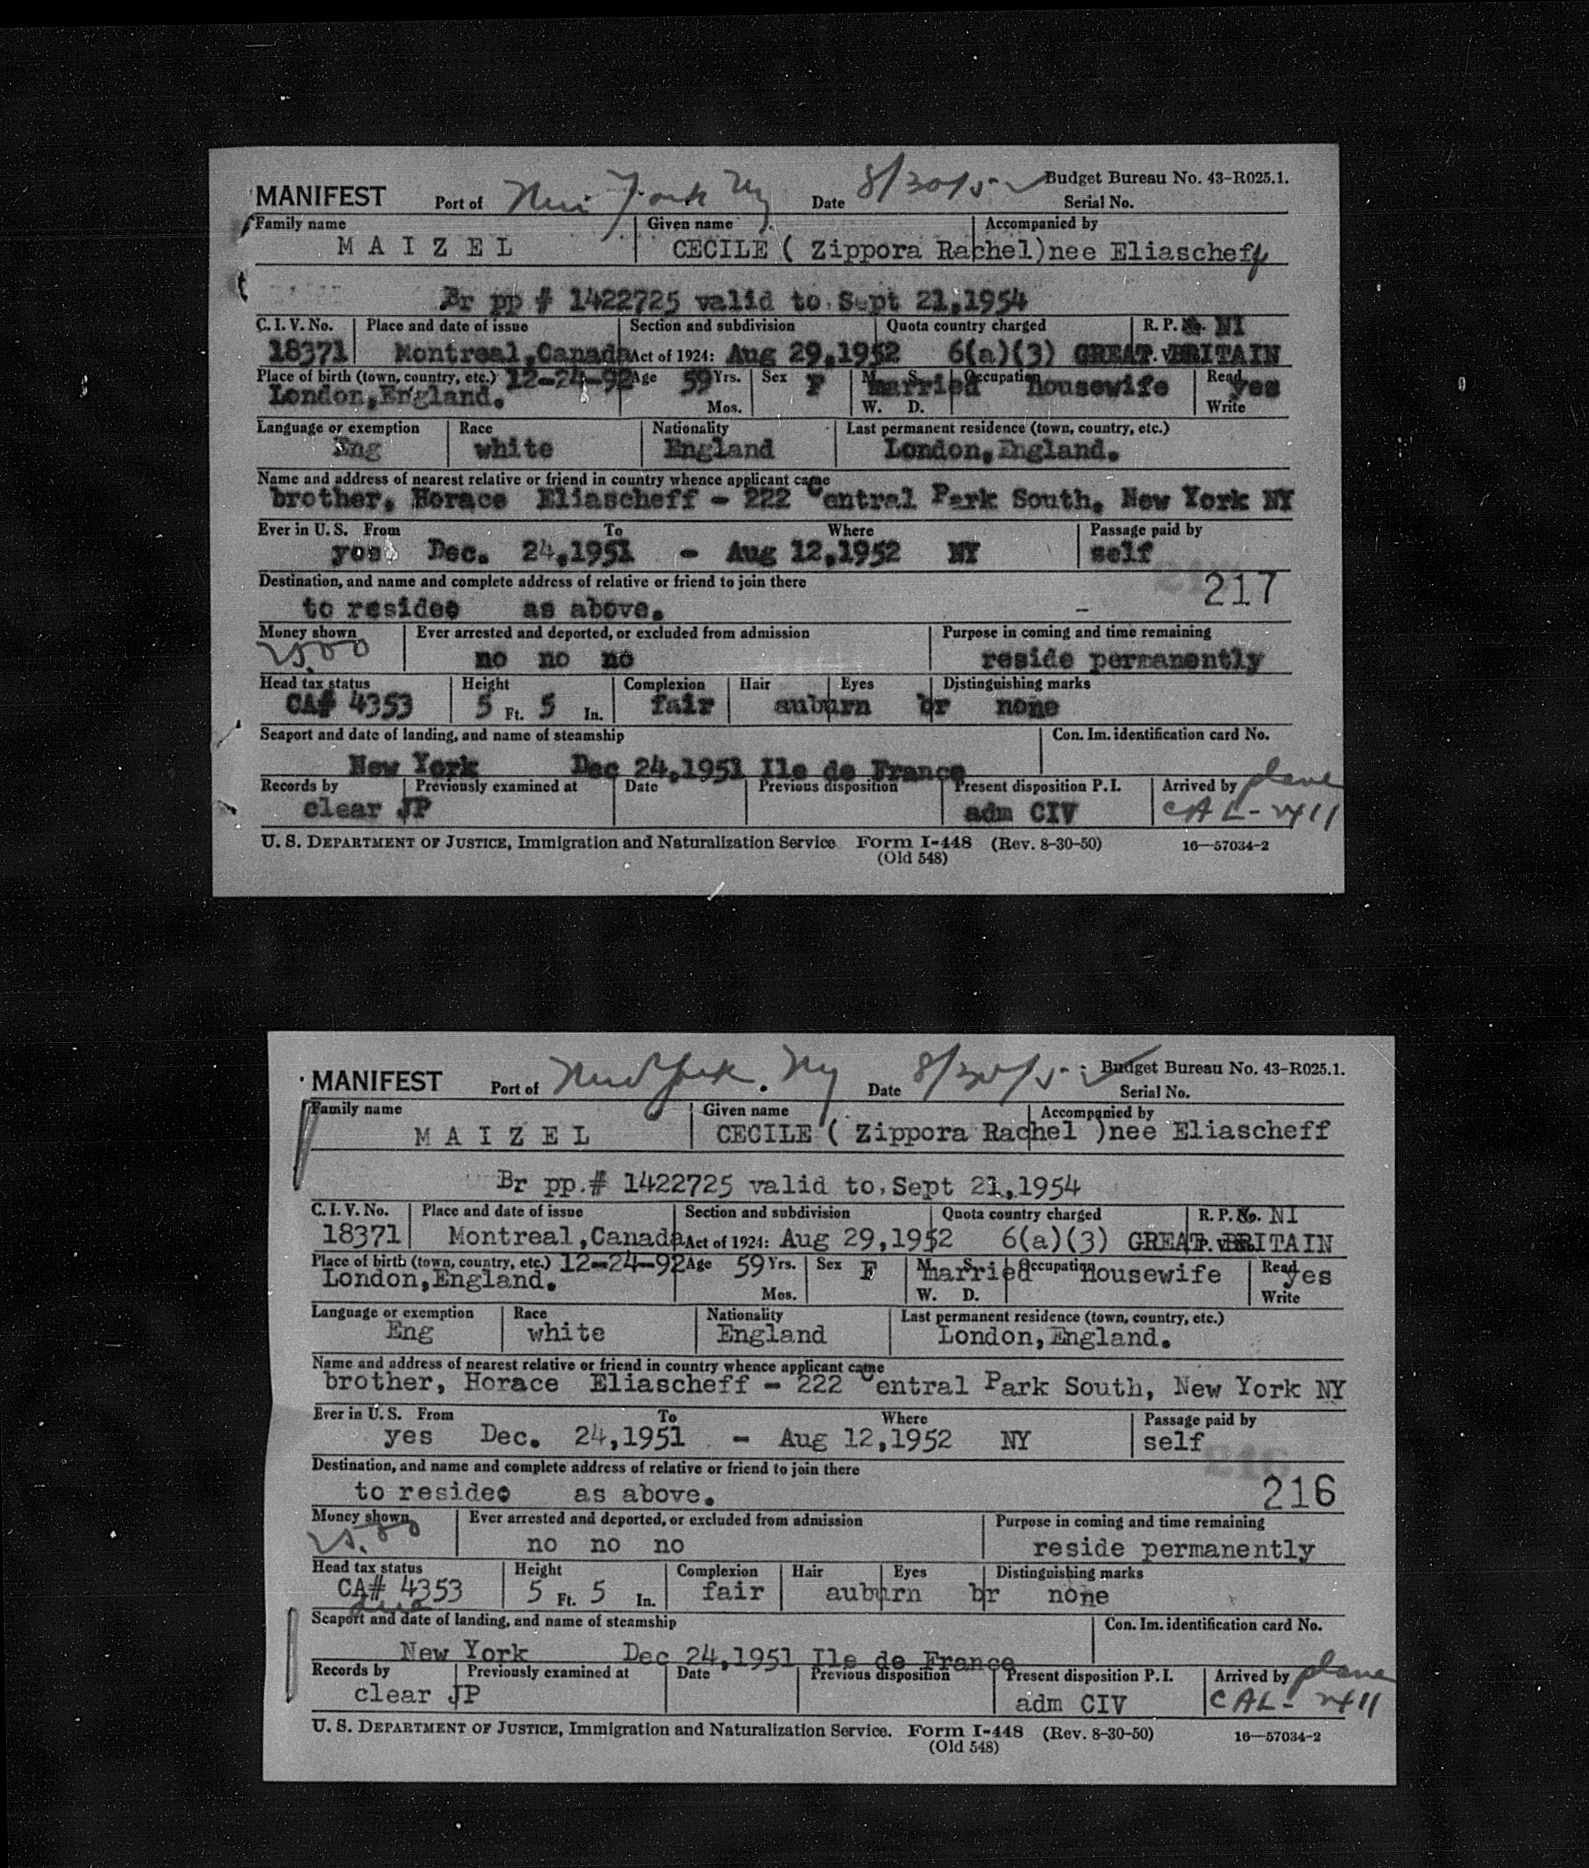 MANIFEST Port of New York Ny Date 8/30/52 Budget Bureau No. 43-R025.1.
Serial No.
Family name Given name Accompanied by
M A I Z E L CECILE ( Zippora Rachel)nee Eliascheff
Br pp # 1422725 valid to Sept 21,1954
C. I. V. No. Place and date of issue Section and subdivision Quota country charged R. P. No. NI
18371 Montreal,Canada Act of 1924: Aug 29,1952 6(a)(3) GREAT BRITAIN
Place of birth (town, country, etc.) 12-24-92 Age 59 Yrs. Sex F M. S. married Occupation housewife Read yes
London,England. Mos. W. D. Write
Language or exemption Race Nationality Last permanent residence (town, country, etc.)
Eng white England London,England.
Name and address of nearest relative or friend in country whence applicant came
brother, Horace Eliascheff - 222 Central Park South, New York NY
Ever in U. S. From To Where Passage paid by
yes Dec. 24,1951 - Aug 12,1952 NY self
Destination, and name and complete address of relative or friend to join there
217
to residee as above.
Money shown Ever arrested and deported, or excluded from admission Purpose in coming and time remaining
no no no reside permanently
Head tax status Height Complexion Hair Eyes Distinguishing marks
CA# 4353 5 Ft. 5 In. fair auburn br none
Seaport and date of landing, and name of steamship Con. Im. identification card No.
New York Dec 24,1951 Ile de France
Records by Previously examined at Date Previous disposition Present disposition P. I. Arrived by plane
clear JP adm CIV CAL-2411
U. S. DEPARTMENT OF JUSTICE, Immigration and Naturalization Service Form I-448 (Rev. 8-30-50) 16—57034-2
(Old 548)
MANIFEST Port of New York. Ny Date 8/30/52 Budget Bureau No. 43-R025.1.
Serial No.
Family name Given name Accompanied by
M A I Z E L CECILE ( Zippora Rachel )nee Eliascheff
Br pp.# 1422725 valid to,Sept 21,1954
C. I. V. No. Place and date of issue Section and subdivision Quota country charged R. P. No. NI
18371 Montreal,Canada Act of 1924: Aug 29,1952 6(a)(3) GREAT BRITAIN
Place of birth (town, country, etc.) 12-24-92 Age 59 Yrs. Sex F M. S. married Occupation housewife Read yes
London,England. Mos. W. D. Write
Language or exemption Race Nationality Last permanent residence (town, country, etc.)
Eng white England London,England.
Name and address of nearest relative or friend in country whence applicant came
brother, Horace Eliascheff - 222 Central Park South, New York NY
Ever in U. S. From To Where Passage paid by
yes Dec. 24,1951 - Aug 12,1952 NY self
Destination, and name and complete address of relative or friend to join there
216
to residee as above.
Money shown Ever arrested and deported, or excluded from admission Purpose in coming and time remaining
no no no reside permanently
Head tax status Height Complexion Hair Eyes Distinguishing marks
CA# 4353 5 Ft. 5 In. fair auburn br none
Seaport and date of landing, and name of steamship Con. Im. identification card No.
New York Dec 24,1951 Ile de France
Records by Previously examined at Date Previous disposition Present disposition P. I. Arrived by plane
clear JP adm CIV CAL-2411
U. S. DEPARTMENT OF JUSTICE, Immigration and Naturalization Service. Form I-448 (Rev. 8-30-50) 16—57034-2
(Old 548)